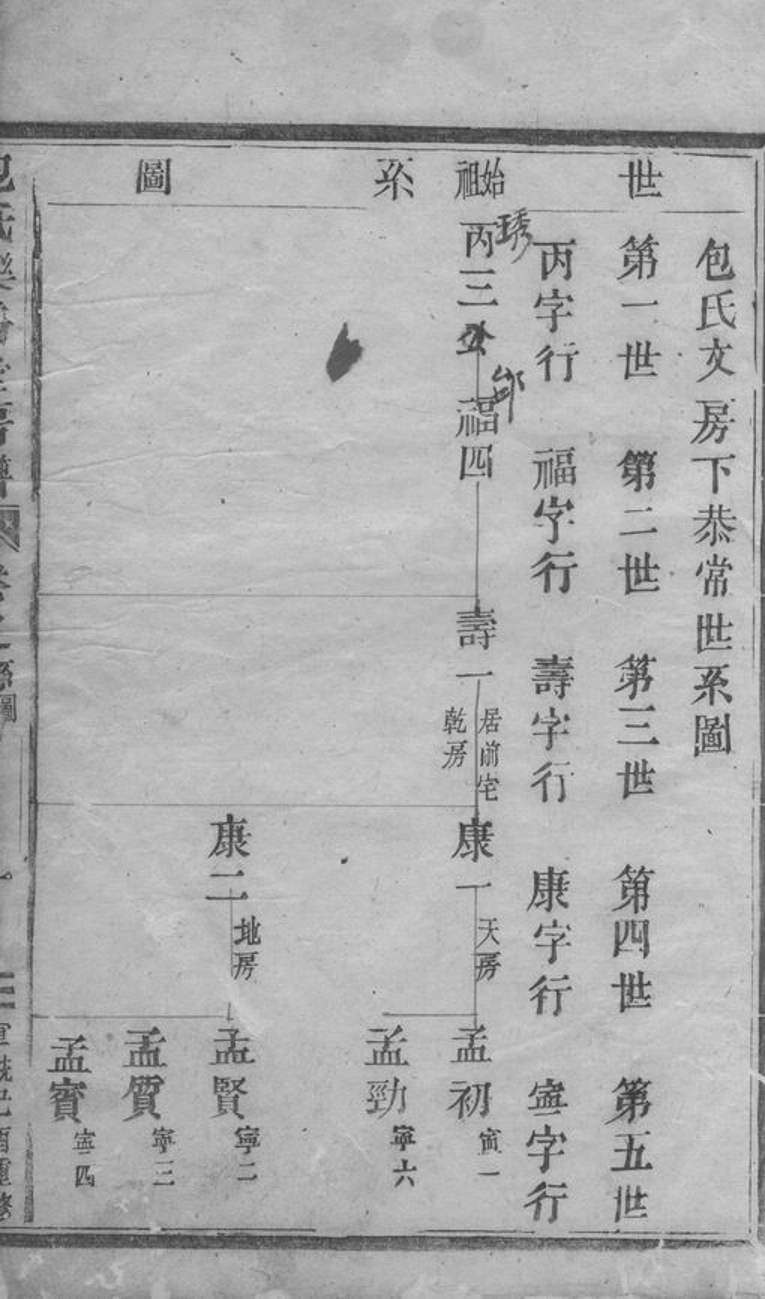 世
始祖
系
圖
包氏文房下恭常世系圖
第一世 第二世 第三世 第四世 第五世
丙字行 福字行 壽字行 康字行 寍字行
丙三公 福四 壽一 居前宅 乾房 康一 天房 孟初 寍一
琇
邰
孟勁 寧六
康二 地房 孟賢 寧二
孟質 寧三
孟賓 寍四